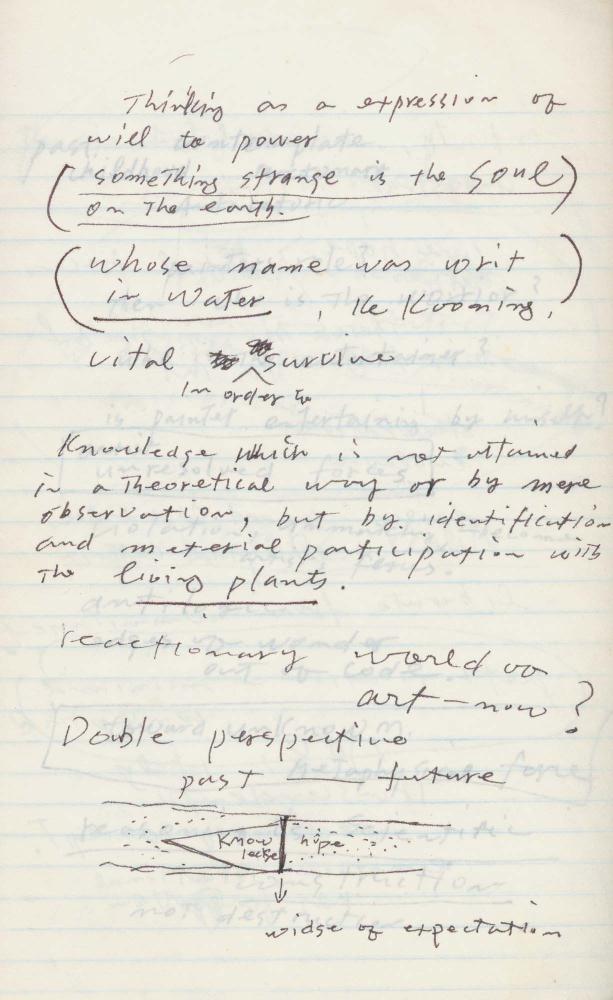 Thinking as a expression of
will to power
(something strange is the soul)
on the earth.
(whose name was writ
in water, ke Kooning,)
vital survive
In order to
Knowledge which is not attained
in a theoretical way or by mere
observation, but by identification
and meterial participation with
the living plants.
reactionary world
art — now?
Double perspective
past — future
Know
ledge
hope
widge of expectation